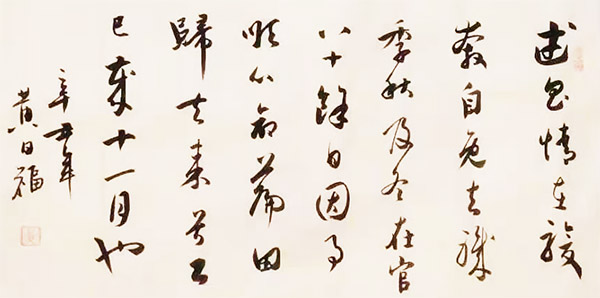 武昌情在駿
奔自免去職
季秋及冬在官
八十餘日因事
順心命篇曰
歸去来兮乙
巳歲十一月也
辛丑年
黃日福